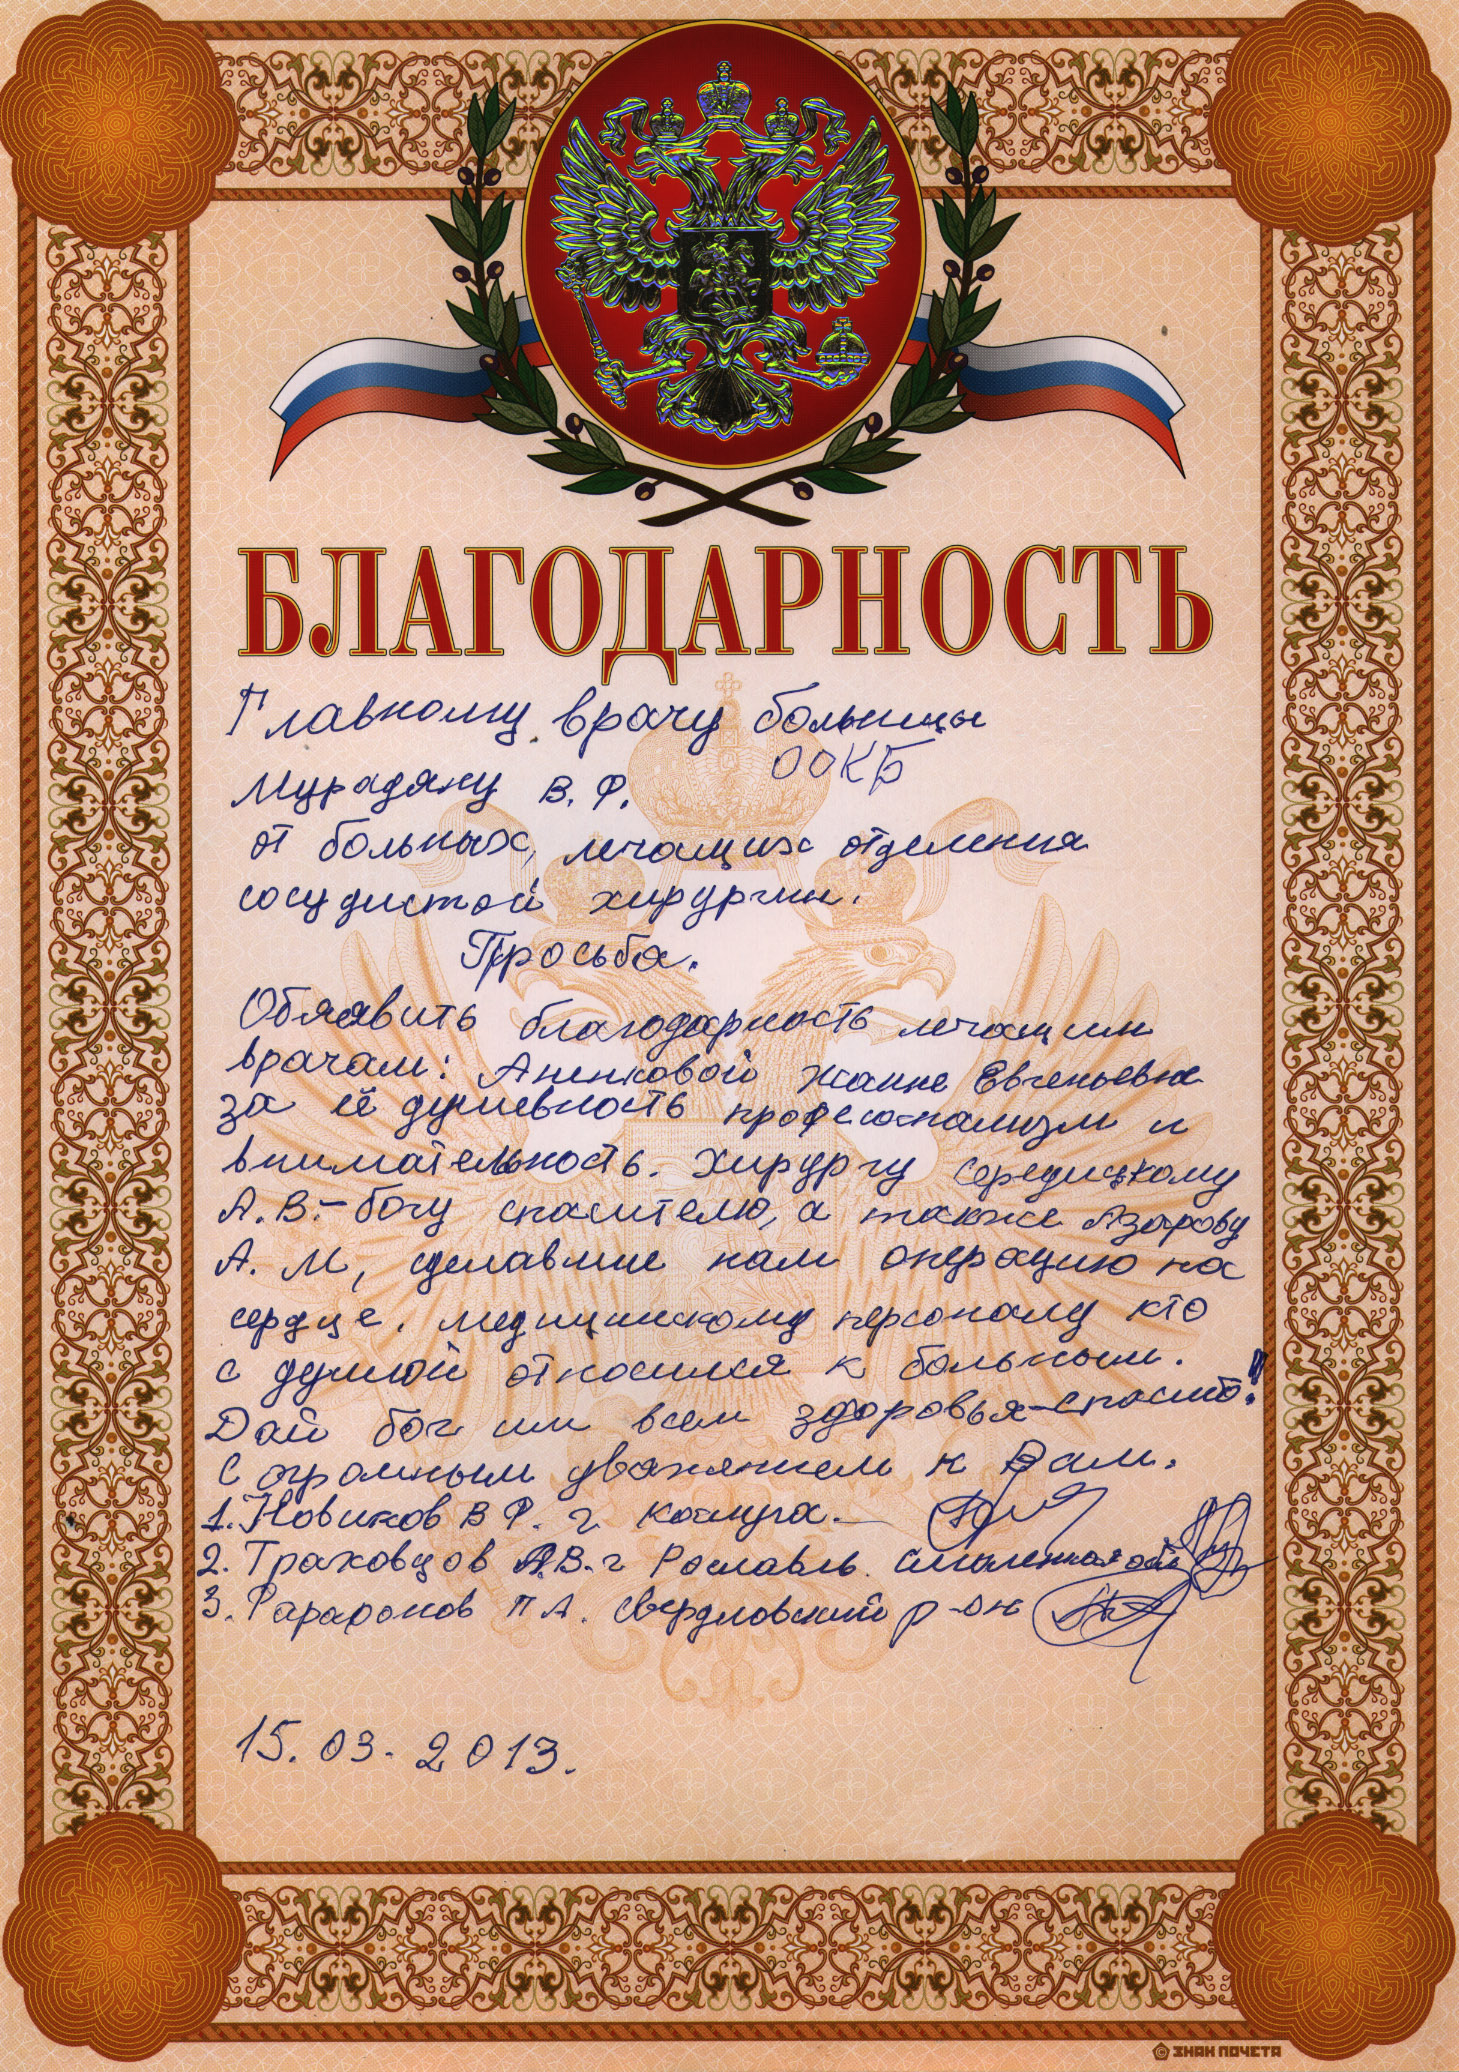 БЛАГОДАРНОСТЬ
Главному врачу больницы
ООКБ
Мурадяну В. Ф.
от больных, лечащих отделения
сосудистой хирургии.
Просьба.
Обяявить благодарность лечащим
врачам: Аненковой Жанне Евгеньевне
за её душевность професионализм и
внимательность. Хирургу Середицкому
А.В.- богу спасителю, а также Азарову
А. М, сделавшие нам операцию на
сердце. медицинскому персоналу кто
с душой относился к больным.
Дай бог им всем здоровья-спасибо!
С огромным уважением к Вам.
1. Новиков В Ф. г. Калуга.
2. Траховцов А.В. г Рославль. Смоленская обл
3. Фарафонов П А. Свердловский р-он
15. 03. 2013.
© ЗНАК ПОЧЕТА